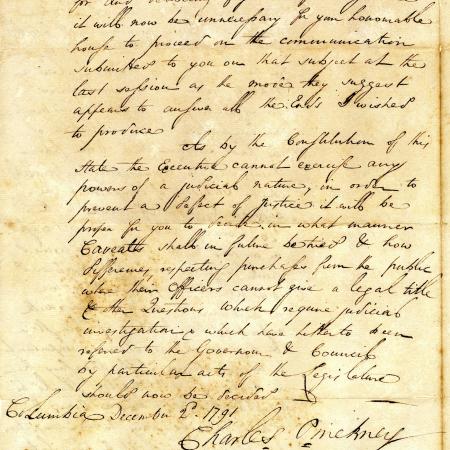 it will now be unnecessary for your honourable
house to proceed on the communication
submitted to you on that subject at the
last session as the mode they suggest
appears to answer all the Ends I wished
to produce
As by the Constitution of this
State the Executive cannot exercise any
powers of a judicial nature, in order to
prevent a defect of Justice it will be
proper for you to decide in what manner
Caveats shall in future be tried & how
differences respecting purchases from the public
where their Officers cannot give a legal title
& other Questions which require judicial
investigation & which have hitherto been
referred to the Governour & Council
by particular acts of the Legislature
should now be decided
Columbia December 2d. 1791
Charles Pinckney